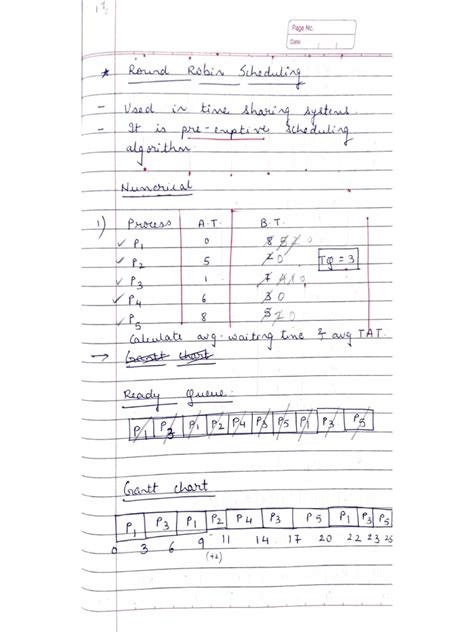 Page No.
Date
* Round Robin Scheduling
- Used in time sharing systems.
- It is pre-emptive scheduling
algorithm
Numerical
1) Process A.T. B.T.
✓ P1 0 8 5 2 0
✓ P2 5 2 0 TQ = 3
✓ P3 1 7 4 1 0
✓ P4 6 3 0
✓ P5 8 5 2 0
Calculate avg. waiting time & avg TAT.
→ Gantt chart
Ready Queue
P1 P3 P1 P2 P4 P3 P5 P1 P3 P5
Gantt chart
P1 P3 P1 P2 P4 P3 P5 P1 P3 P5
0 3 6 9 11 14 17 20 22 23 25
(+2)